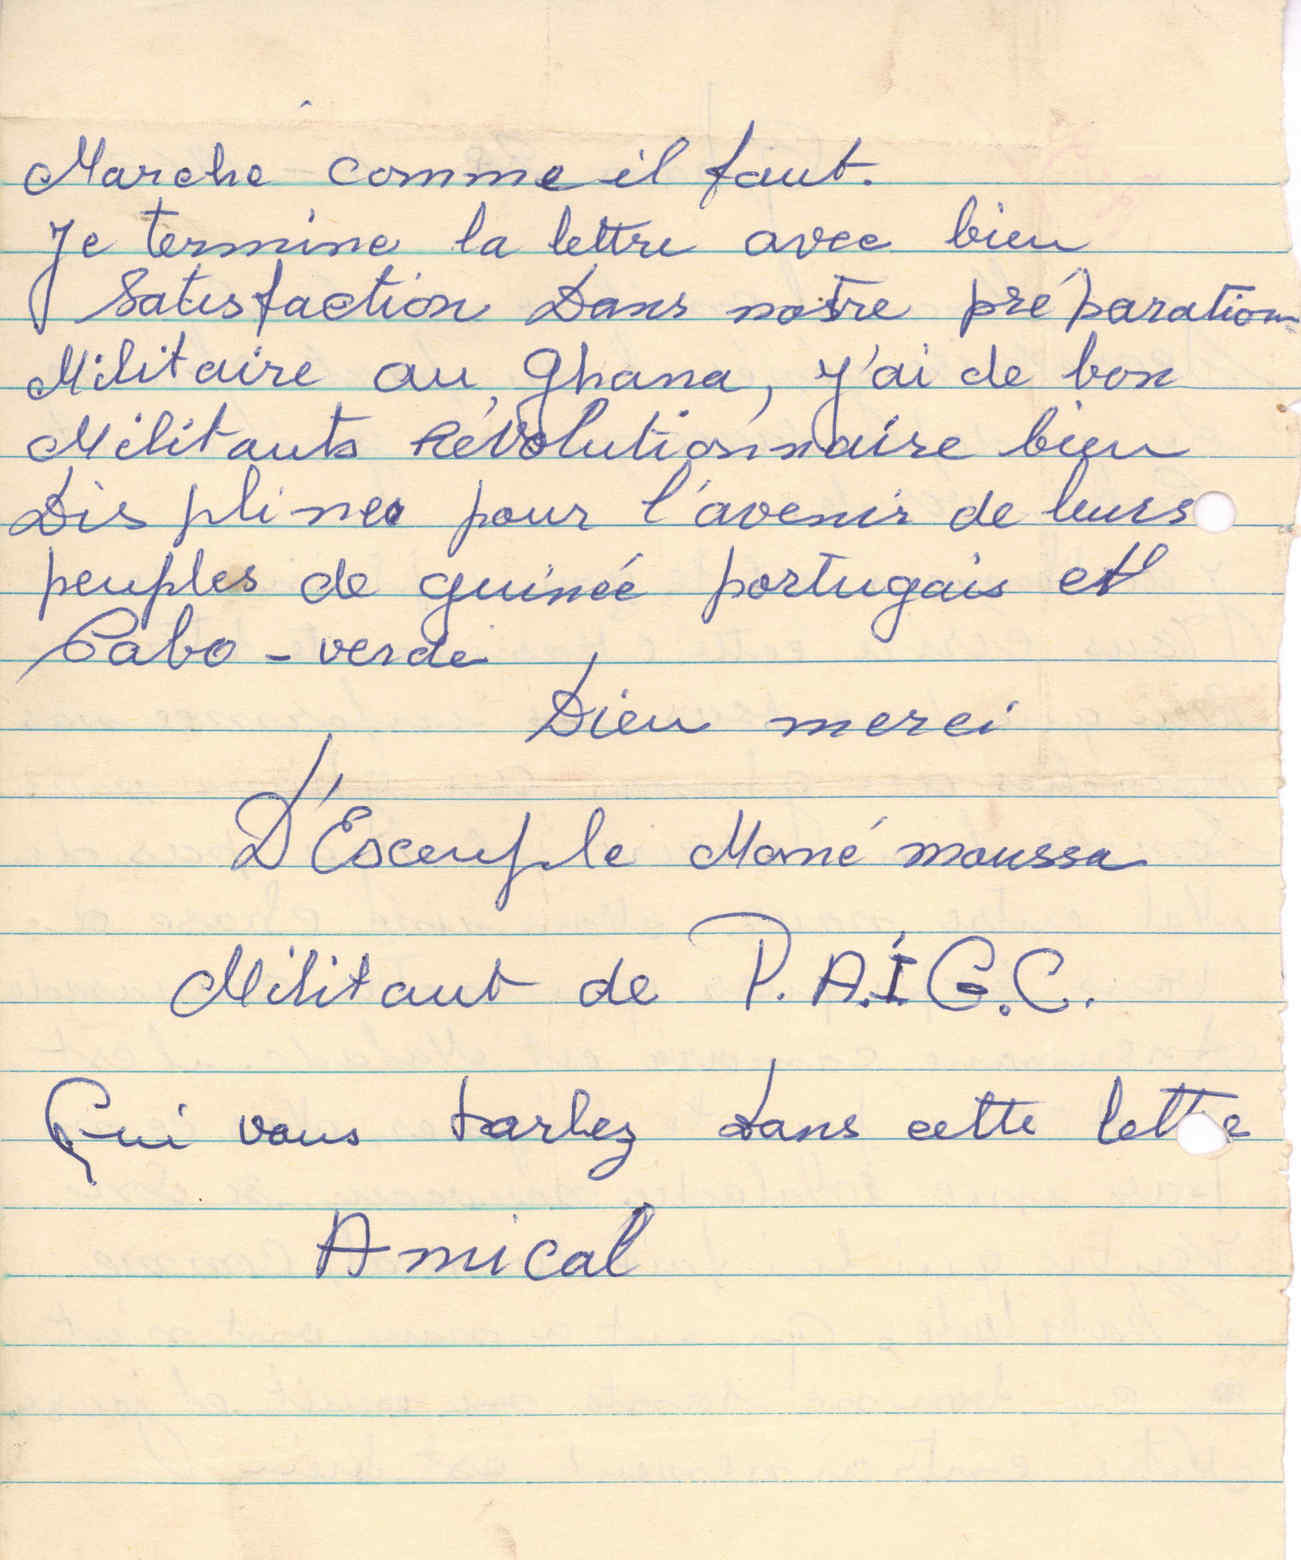 Marche comme il faut.
Je termine la lettre avec bien
Satisfaction Dans notre préparation
Militaire au Ghana, J'ai de bon
Militants Révolutionnaire bien
Displines pour l'avenir de leurs
peuples de guinée portugais et
Cabo-verde
Dieu merci
D'Exemple Mané moussa
Militant de P.A.I.G.C.
Qui vous parlez Dans cette lettre
Amical